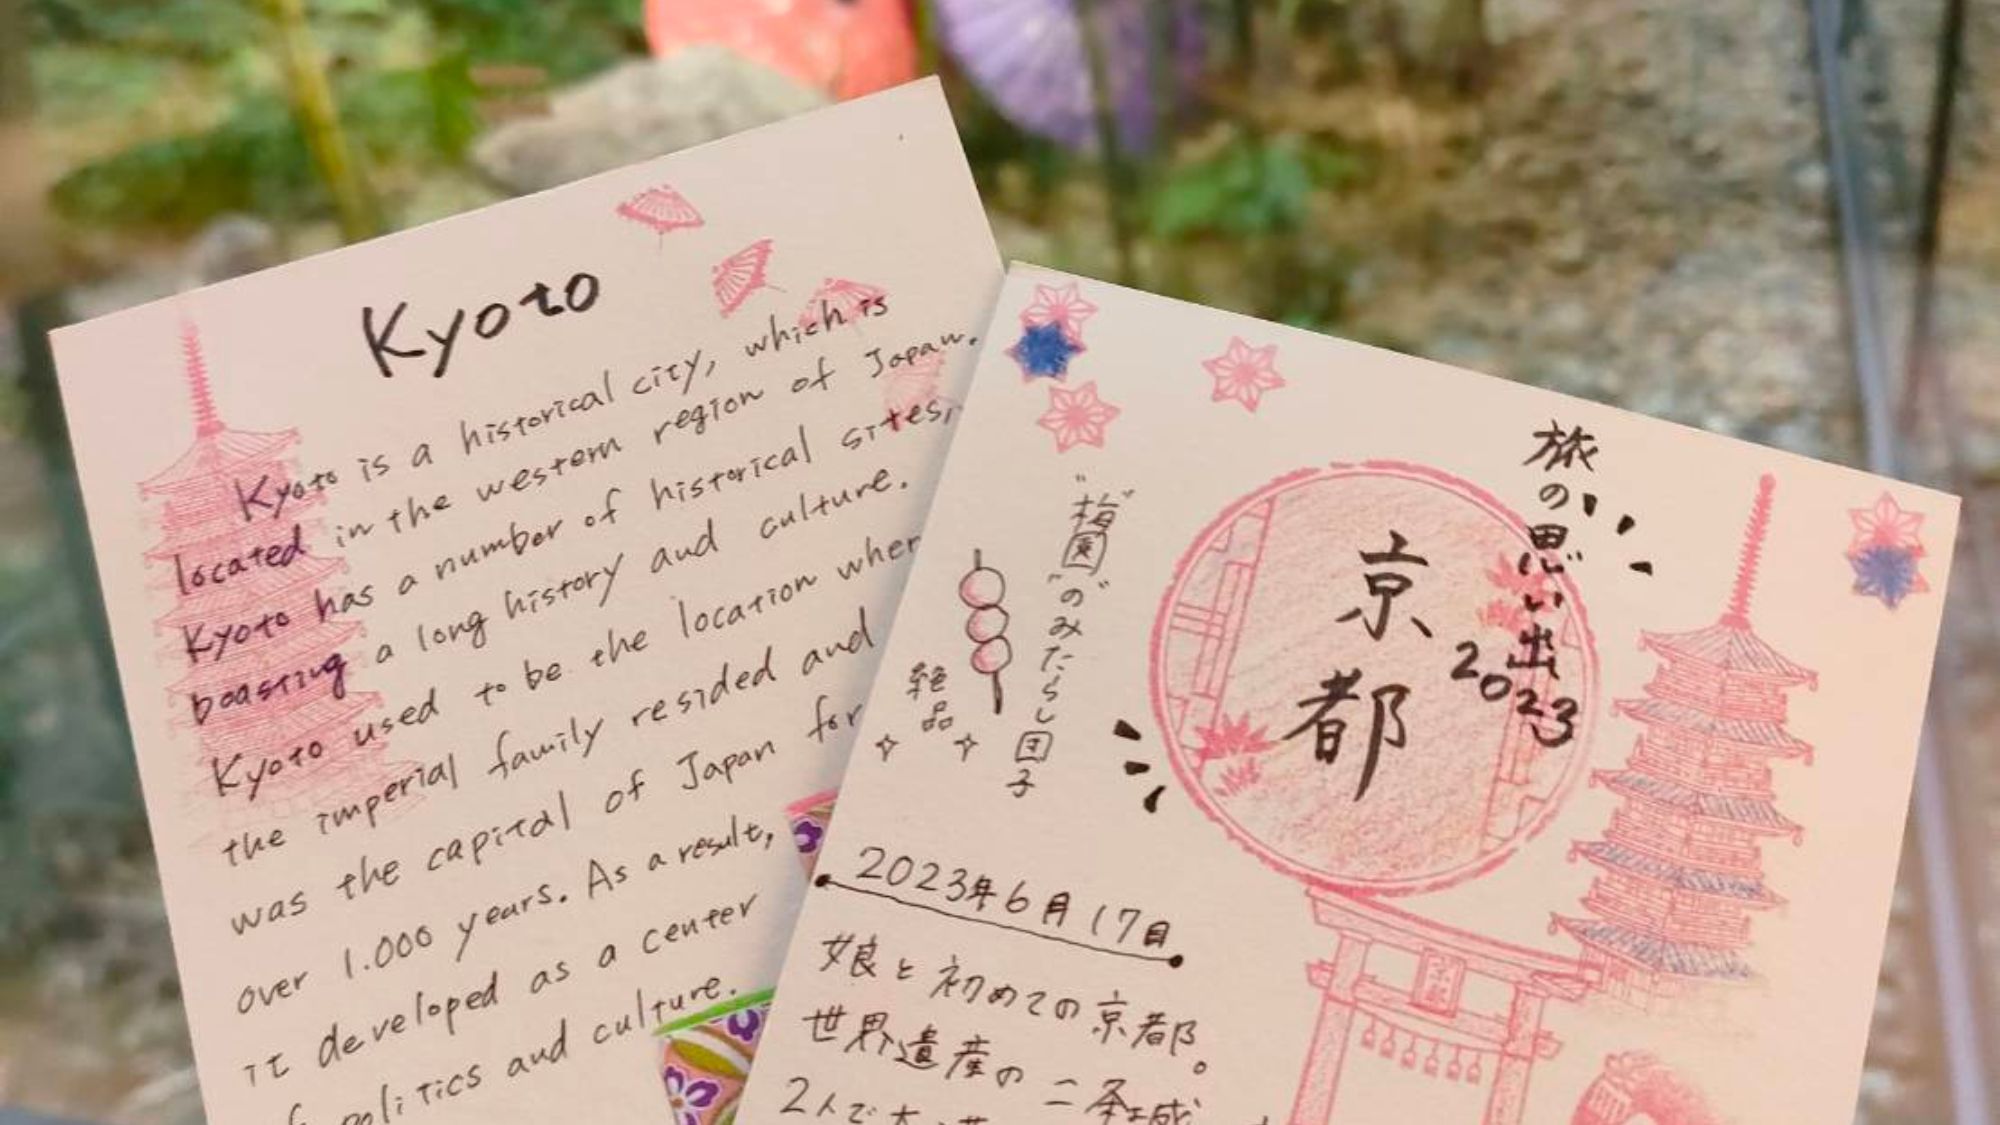 Kyoto
Kyoto is a historical city, which is
located in the western region of Japan.
Kyoto has a number of historical sites,
boasting a long history and culture.
Kyoto used to be the location wher
the imperial family resided and
was the capital of Japan for
over 1.000 years. As a result,
it developed as a center
politics and culture.
旅の思い出
2023
京都
"梅園"のみたらし団子
絶品
2023年6月17日
娘と初めての京都。
世界遺産の二条城
2人で